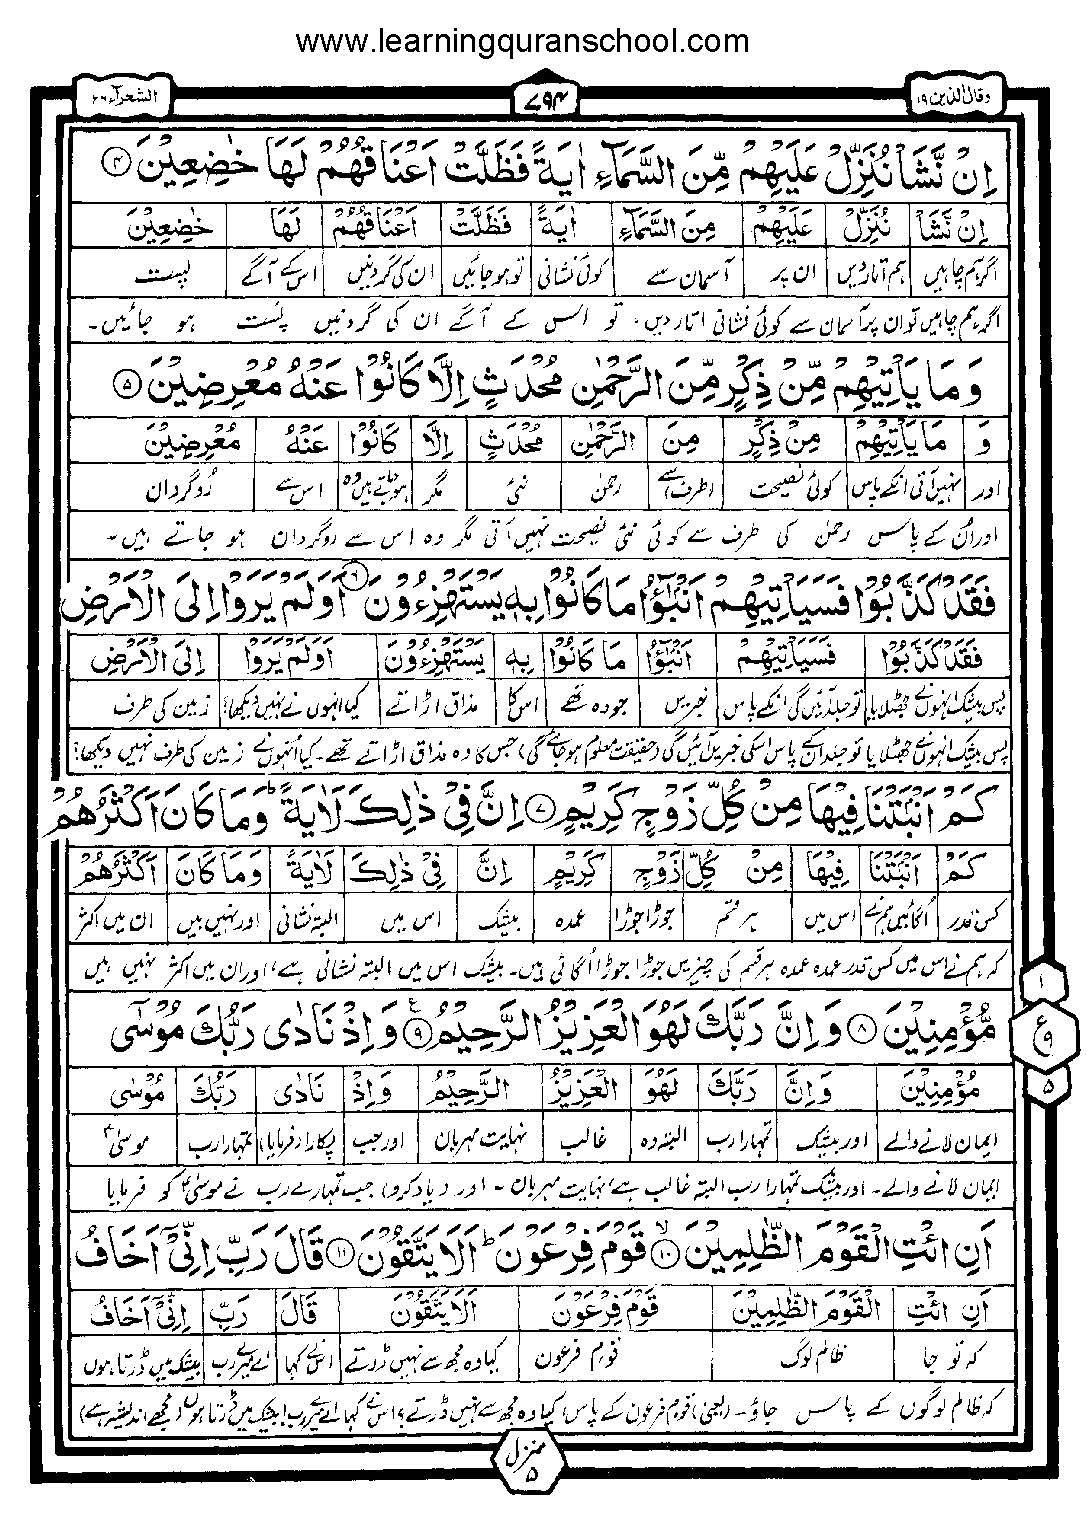 www.learningquranschool.com
وقال الذین ۱۹
۷۹۴
الشعرآء ۲۶
اِنۡ نَّشَاۡ نُنَزِّلۡ عَلَیۡہِمۡ مِّنَ السَّمَآءِ اٰیَۃً فَظَلَّتۡ اَعۡنَاقُہُمۡ لَہَا خٰضِعِیۡنَ ﴿۴﴾
اِنۡ نَّشَاۡ نُنَزِّلۡ عَلَیۡہِمۡ مِنَ السَّمَآءِ اٰیَۃً فَظَلَّتۡ اَعۡنَاقُہُمۡ لَہَا خٰضِعِیۡنَ
اگر ہم چاہیں ہم اتار دیں ان پر آسمان سے کوئی نشانی تو ہو جائیں ان کی گردنیں اس کے آگے پست
اگر ہم چاہیں تو ان پر آسمان سے کوئی نشانی اتار دیں، تو اس کے آگے ان کی گردنیں پست ہو جائیں۔
وَ مَا یَاۡتِیۡہِمۡ مِّنۡ ذِکۡرٍ مِّنَ الرَّحۡمٰنِ مُحۡدَثٍ اِلَّا کَانُوۡا عَنۡہُ مُعۡرِضِیۡنَ ﴿۵﴾
وَ مَا یَاۡتِیۡہِمۡ مِنۡ ذِکۡرٍ مِنَ الرَّحۡمٰنِ مُحۡدَثٍ اِلَّا کَانُوۡا عَنۡہُ مُعۡرِضِیۡنَ
اور نہیں آتی انکے پاس کوئی نصیحت (طرف) سے رحمٰن نئی مگر ہو جاتے ہیں وہ اس سے روگردان
اور ان کے پاس رحمٰن کی طرف سے کوئی نئی نصیحت نہیں آتی مگر وہ اس سے روگردان ہو جاتے ہیں۔
فَقَدۡ کَذَّبُوۡا فَسَیَاۡتِیۡہِمۡ اَنۡۢبٰٓؤُا مَا کَانُوۡا بِہٖ یَسۡتَہۡزِءُوۡنَ ﴿۶﴾ اَوَ لَمۡ یَرَوۡا اِلَی الۡاَرۡضِ
فَقَدۡ کَذَّبُوۡا فَسَیَاۡتِیۡہِمۡ اَنۡۢبٰٓؤُا مَا کَانُوۡا بِہٖ یَسۡتَہۡزِءُوۡنَ اَوَلَمۡ یَرَوۡا اِلَی الۡاَرۡضِ
پس بیشک انہوں نے جھٹلایا تو جلد آئیں گی انکے پاس خبریں جو وہ تھے اس کا مذاق اڑاتے کیا انہوں نے نہیں دیکھا؟ زمین کی طرف
پس بیشک انہوں نے جھٹلایا تو جلد انکے پاس اسکی خبریں آئیں گی (حقیقت معلوم ہو جائے گی) جس کا وہ مذاق اڑاتے تھے۔ کیا انہوں نے زمین کی طرف نہیں دیکھا؟
کَمۡ اَنۡۢبَتۡنَا فِیۡہَا مِنۡ کُلِّ زَوۡجٍ کَرِیۡمٍ ﴿۷﴾ اِنَّ فِیۡ ذٰلِکَ لَاٰیَۃً ؕ وَ مَا کَانَ اَکۡثَرُہُمۡ
کَمۡ اَنۡۢبَتۡنَا فِیۡہَا مِنۡ کُلِّ زَوۡجٍ کَرِیۡمٍ اِنَّ فِیۡ ذٰلِکَ لَاٰیَۃً وَمَا کَانَ اَکۡثَرُہُمۡ
کس قدر اگائیں ہم نے اس میں ہر قسم جوڑا جوڑا عمدہ بیشک اس میں البتہ نشانی اور نہیں ہیں ان میں اکثر
کہ ہم نے اس میں کس قدر عمدہ عمدہ ہر قسم کی چیزیں جوڑا جوڑا اگائی ہیں۔ بیشک اس میں البتہ نشانی ہے، اور ان میں اکثر نہیں ہیں
مُّؤۡمِنِیۡنَ ﴿۸﴾ وَ اِنَّ رَبَّکَ لَہُوَ الۡعَزِیۡزُ الرَّحِیۡمُ ﴿۹﴾ وَ اِذۡ نَادٰی رَبُّکَ مُوۡسٰۤی
مُؤۡمِنِیۡنَ وَاِنَّ رَبَّکَ لَہُوَ الۡعَزِیۡزُ الرَّحِیۡمُ وَاِذۡ نَادٰی رَبُّکَ مُوۡسٰی
ایمان لانے والے اور بیشک تمہارا رب البتہ وہ غالب نہایت مہربان اور جب پکارا (فرمایا) تمہارا رب موسیٰؑ
ایمان لانے والے۔ اور بیشک تمہارا رب البتہ غالب ہے نہایت مہربان۔ اور (یاد کرو) جب تمہارے رب نے موسیٰؑ کو فرمایا
اَنِ ائۡتِ الۡقَوۡمَ الظّٰلِمِیۡنَ ﴿۱۰﴾ قَوۡمَ فِرۡعَوۡنَ ؕ اَلَا یَتَّقُوۡنَ ﴿۱۱﴾ قَالَ رَبِّ اِنِّیۡۤ اَخَافُ
اَنِ ائۡتِ الۡقَوۡمَ الظّٰلِمِیۡنَ قَوۡمَ فِرۡعَوۡنَ اَلَا یَتَّقُوۡنَ قَالَ رَبِّ اِنِّیۡۤ اَخَافُ
کہ تو جا ظالم لوگ قوم فرعون کیا وہ مجھ سے نہیں ڈرتے اس نے کہا اے میرے رب بیشک میں ڈرتا ہوں
کہ ظالم لوگوں کے پاس جاؤ۔ (یعنی) قوم فرعون کے پاس، کیا وہ مجھ سے نہیں ڈرتے؟ اس نے کہا اے میرے رب! بیشک میں ڈرتا ہوں (مجھے اندیشہ ہے)
۱
ع
۹
۵
منزل ۵